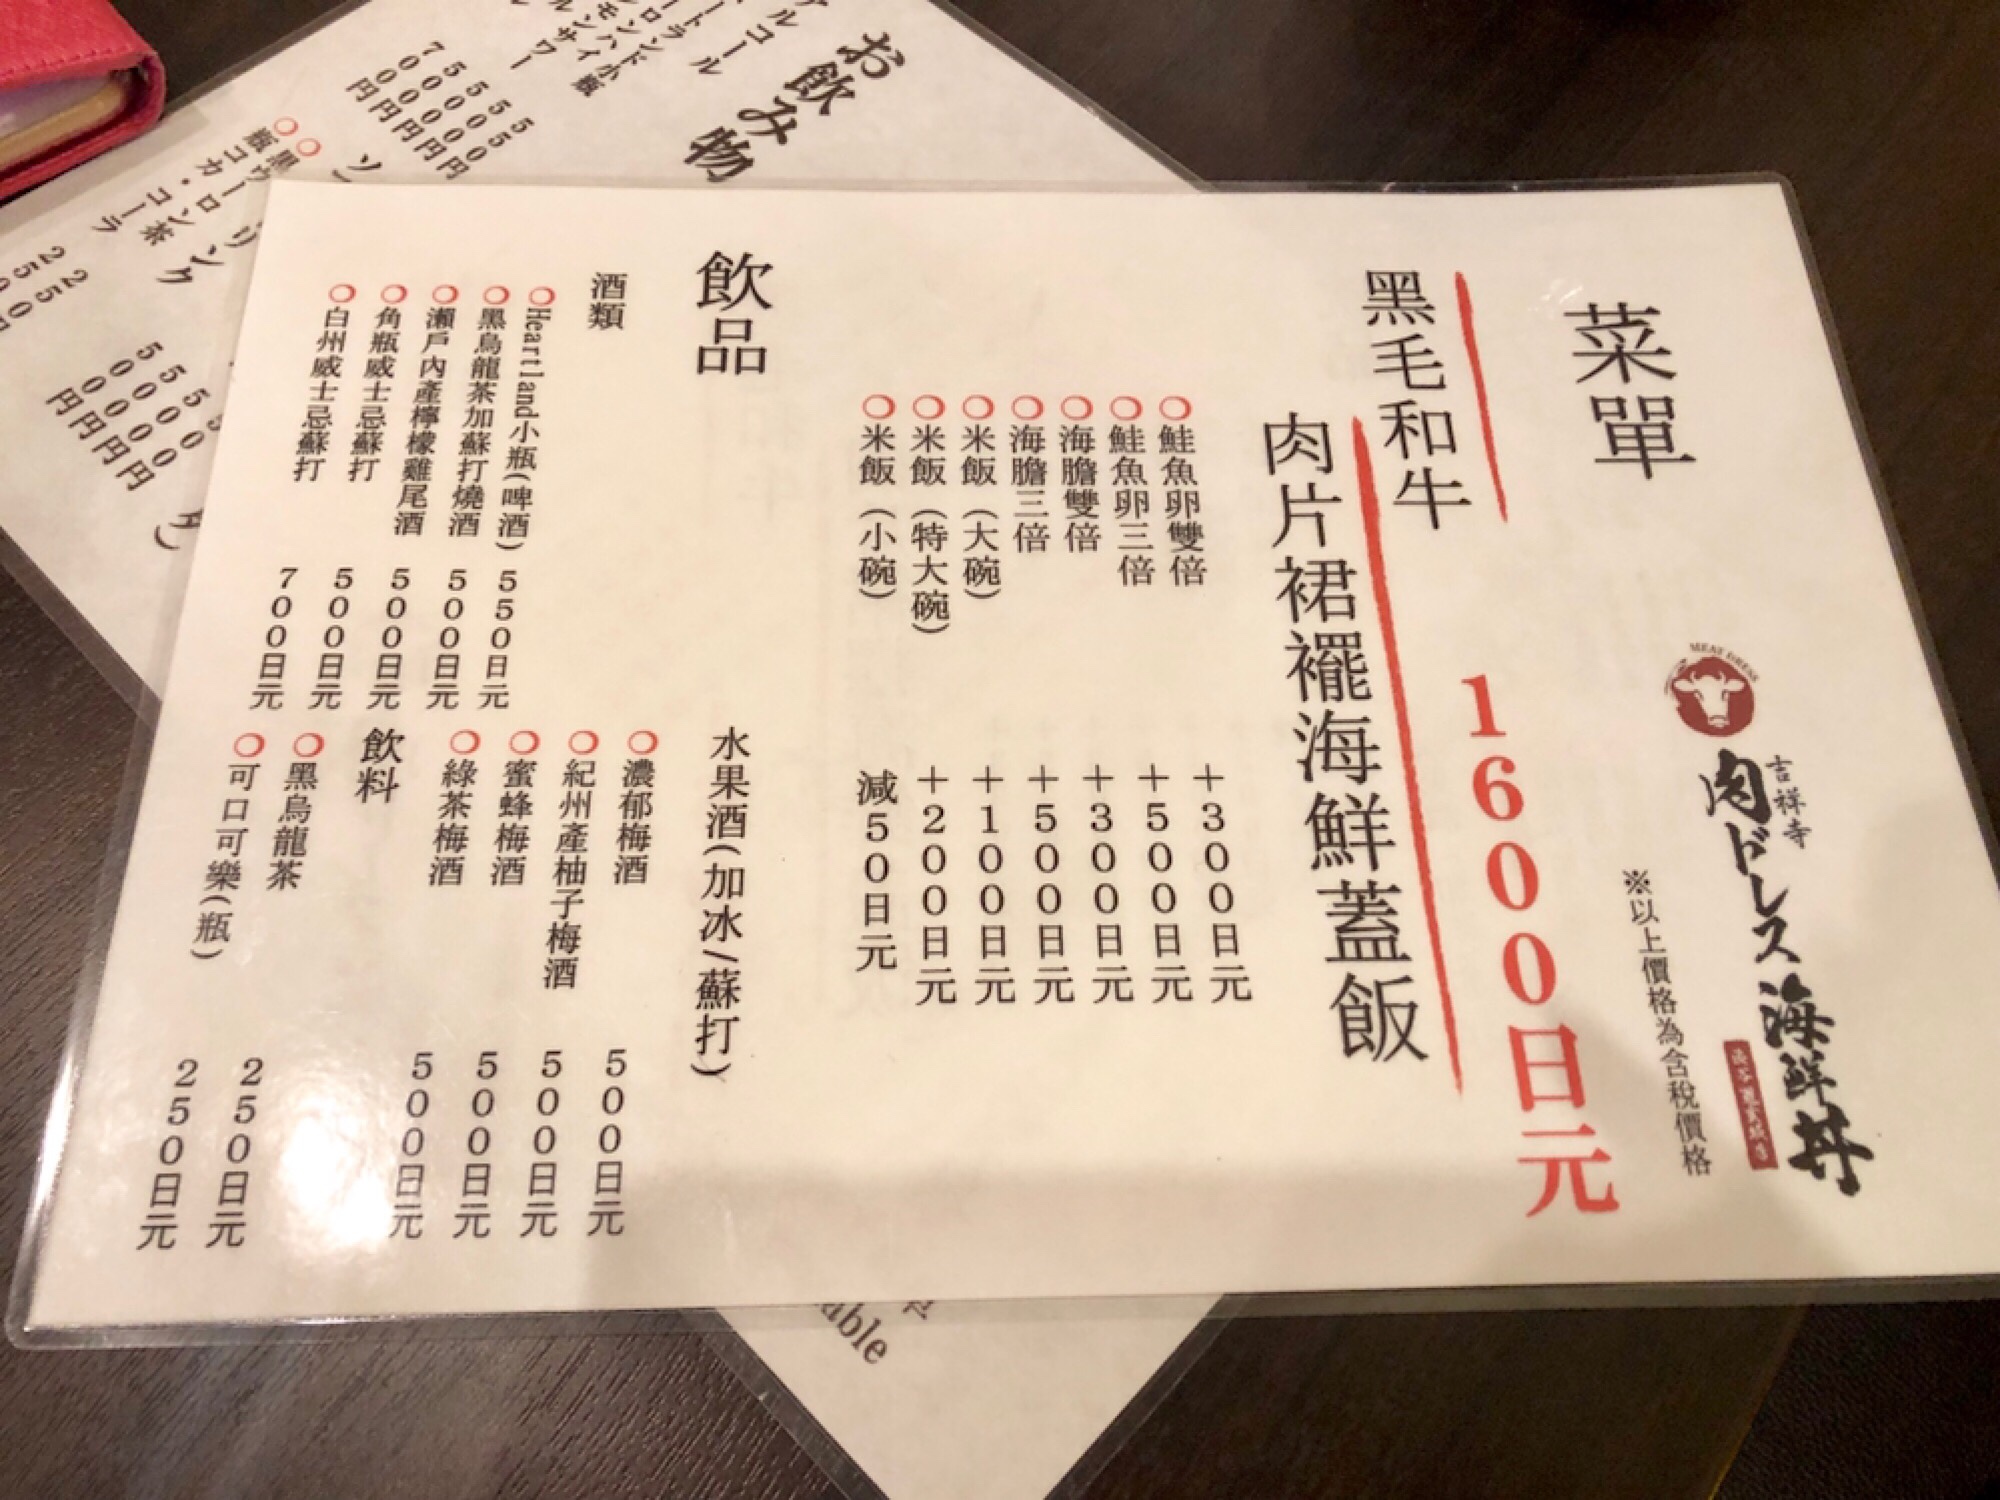 菜單
MEAT DRESS
吉祥寺
肉ドレス海鮮丼
※以上價格為含稅價格
黑毛和牛
肉片裙襬海鮮蓋飯
1600日元
○鮭魚卵雙倍 +300日元
○鮭魚卵三倍 +500日元
○海膽雙倍 +300日元
○海膽三倍 +500日元
○米飯(大碗) +100日元
○米飯(特大碗) +200日元
○米飯(小碗) 減50日元
飲品
酒類
○Heartland小瓶(啤酒) 550日元
○黑烏龍茶加蘇打燒酒 500日元
○瀨戶內產檸檬雞尾酒 500日元
○角瓶威士忌蘇打 500日元
○白州威士忌蘇打 700日元
水果酒(加冰/蘇打)
○濃郁梅酒 500日元
○紀州產柚子梅酒 500日元
○蜜蜂梅酒 500日元
○綠茶梅酒 500日元
飲料
○黑烏龍茶 250日元
○可口可樂(瓶) 250日元
お飲み物
ルコール
550円
500円
500円
700円
リンク
○黒ウーロン茶
○瓶コカ・コーラ
250
able